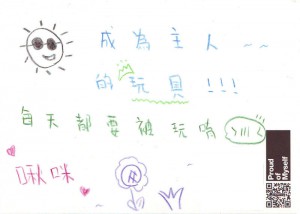 成為主人~~
的玩具!!!
每天都要被玩唷
啾咪
Proud
of
Myself